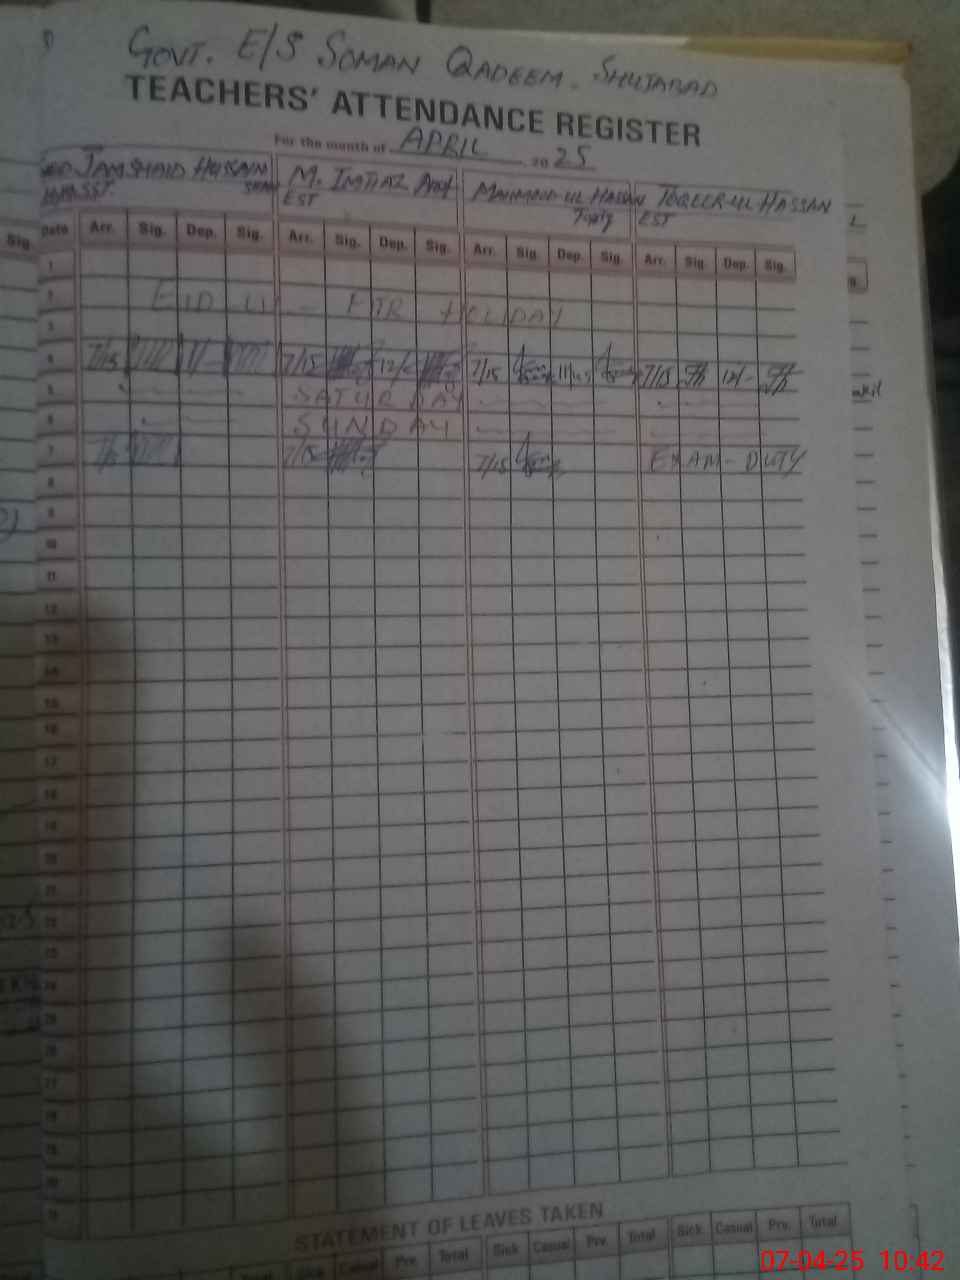 GOVT. E/S SOMAN QADEEM. SHUJABAD
TEACHERS' ATTENDANCE REGISTER
For the month of APRIL 2025
JAMSHAID HUSSAIN M. IMTIAZ MAHMOOD-UL HASSAN TOQEER-UL HASSAN
SST EST EST
Date Arr. Sig. Dep. Sig. Arr. Sig. Dep. Sig. Arr. Sig. Dep. Sig. Arr. Sig. Dep. Sig.
1
2 EID UL - FITR HOLIDAY
3
4 7/15 7/15 7/15 7/15 12/-
5 SATURDAY
6 SUNDAY
7 7/15 7/15 EXAM-DUTY
8
9
10
11
12
13
14
15
16
17
18
19
20
21
22
23
24
25
26
27
28
29
30
31
STATEMENT OF LEAVES TAKEN
Sick Casual Prv. Total Sick Casual Prv. Total Sick Casual Prv. Total
07-04-25 10:42